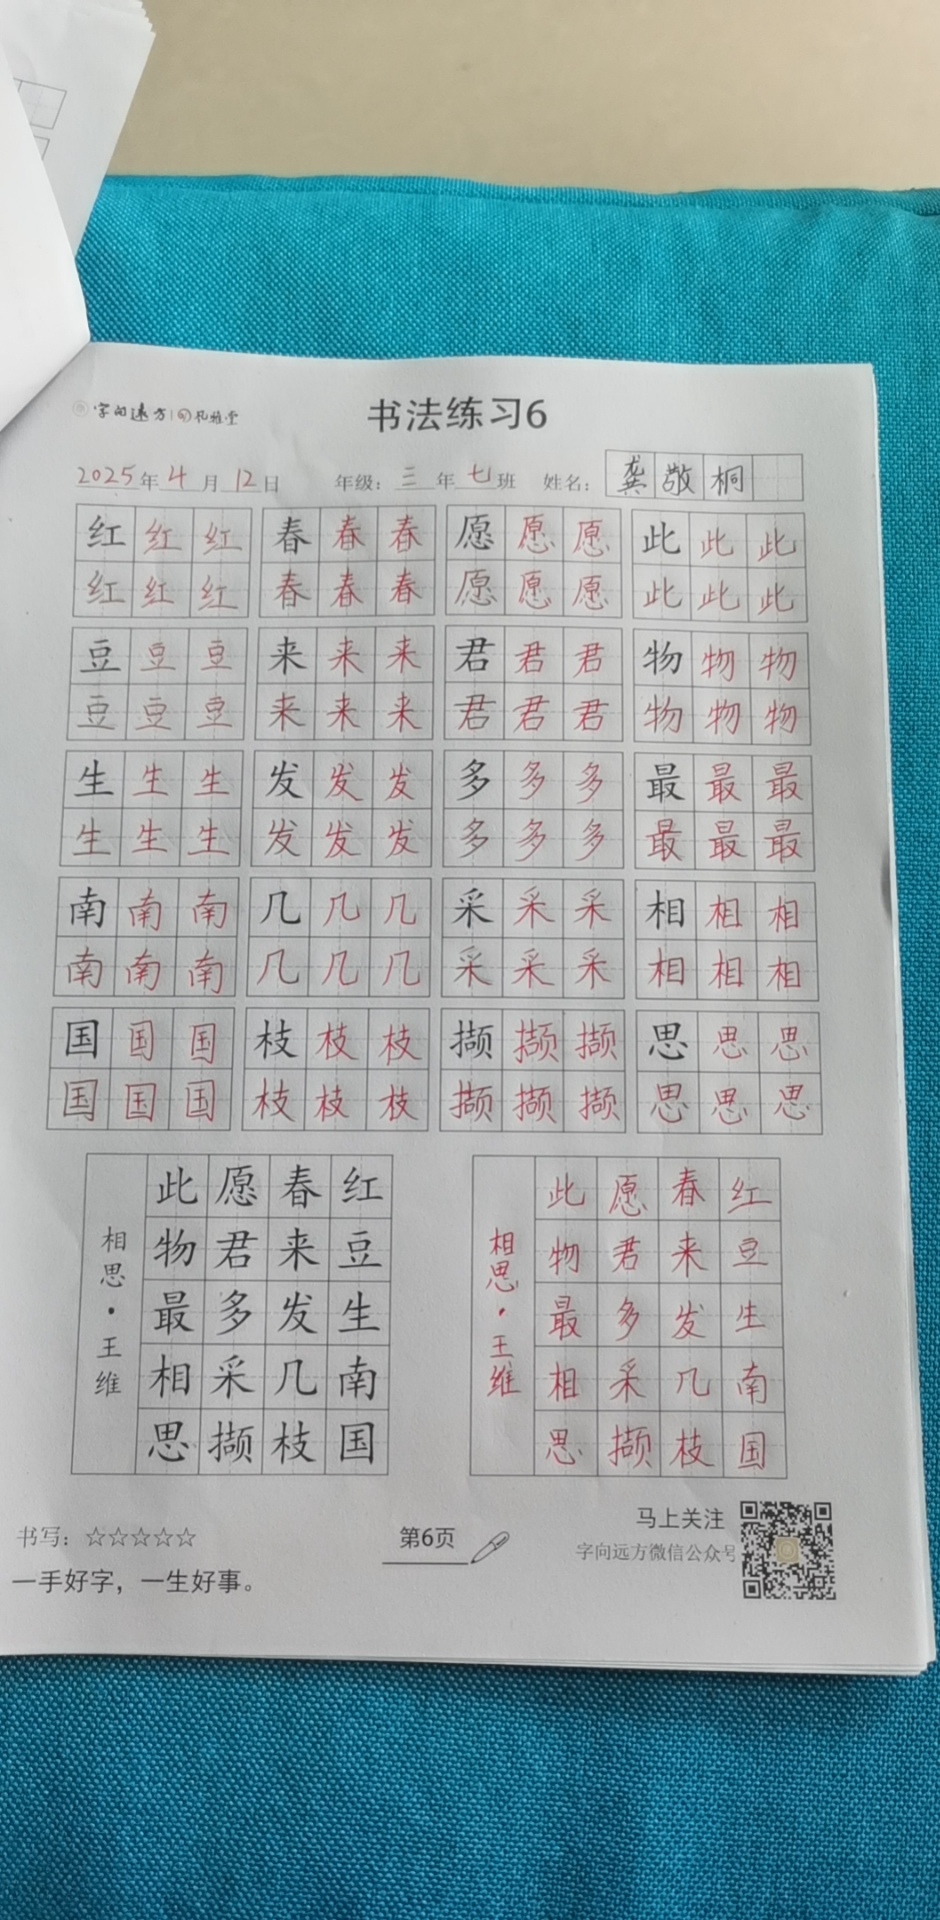 字向远方 书法练习6
2025年4月12日 年级：三年七班 姓名：龚敬桐
红红红 春春春 愿愿愿 此此此
红红红 春春春 愿愿愿 此此此
豆豆豆 来来来 君君君 物物物
豆豆豆 来来来 君君君 物物物
生生生 发发发 多多多 最最最
生生生 发发发 多多多 最最最
南南南 几几几 采采采 相相相
南南南 几几几 采采采 相相相
国国国 枝枝枝 撷撷撷 思思思
国国国 枝枝枝 撷撷撷 思思思
红豆生南国
春来发几枝
愿君多采撷
此物最相思
相思·王维
红豆生南国
春来发几枝
愿君多采撷
此物最相思
相思·王维
书写：☆☆☆☆☆
一手好字，一生好事。
第6页
马上关注
字向远方微信公众号